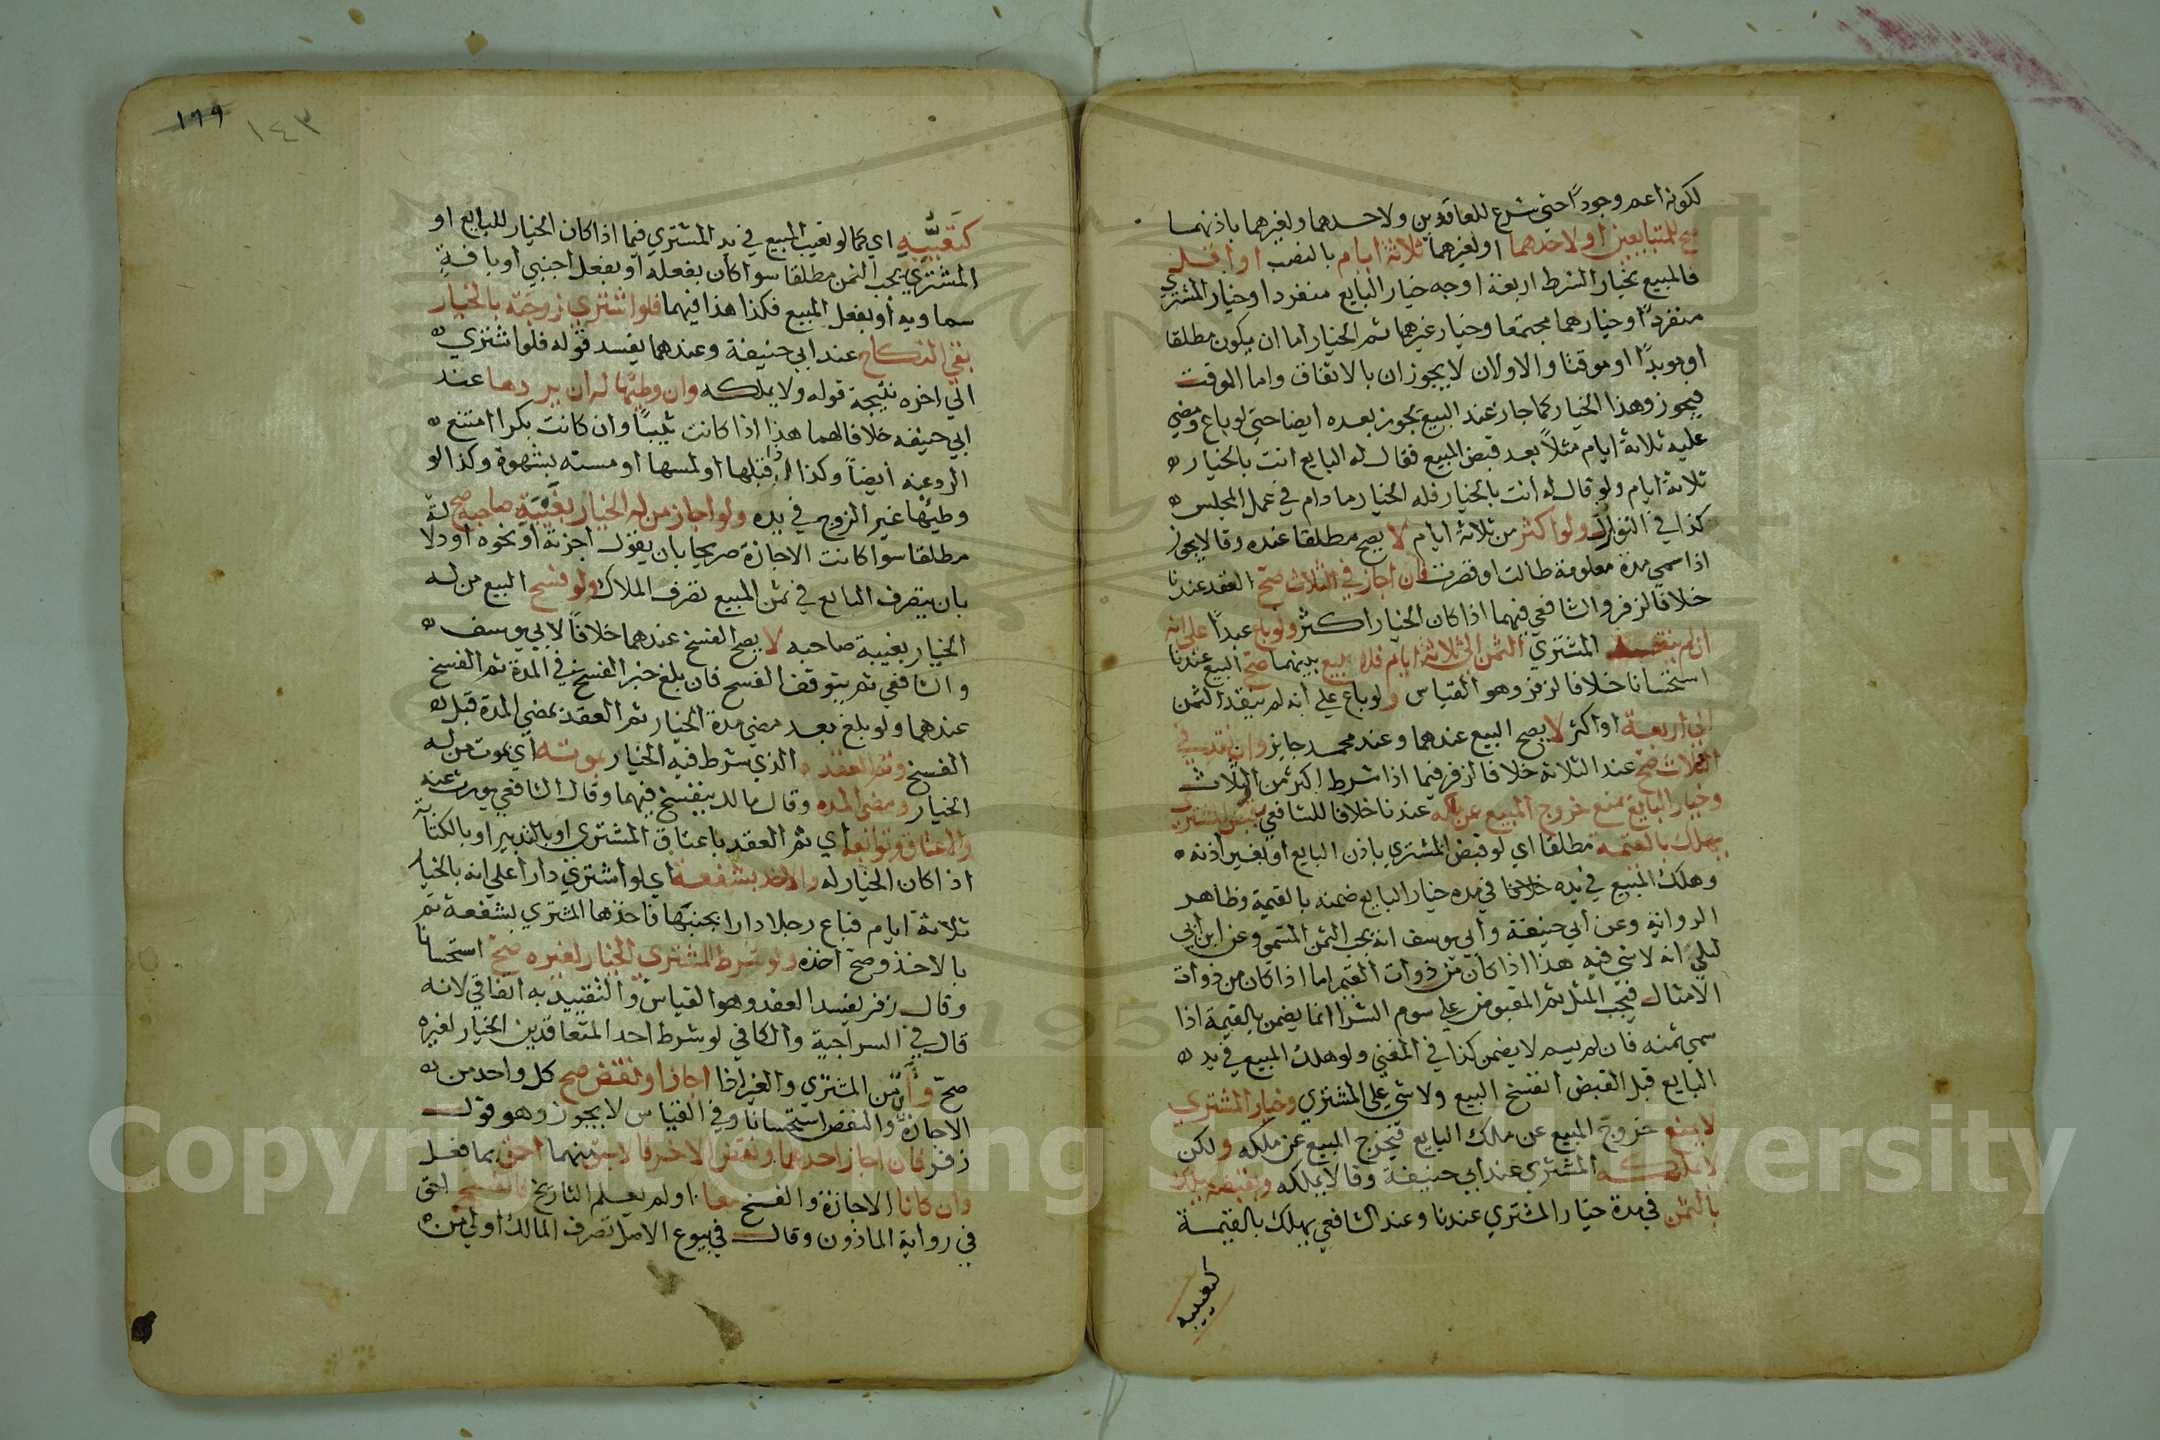 لكونه اعم وجودًا حتى شرع للعاقدين ولاحدهما ولغيرهما باذنهما
صح للمتبايعين او لاحدهما او لغيرهما ثلاثة ايام بالنصب او اقل
فالمبيع بخيار الشرط اربعة اوجه خيار البايع منفردا وخيار المشتري
منفردًا وخيارهما مجتمعا وخيار غيرهما ثم الخيار اما ان يكون مطلقا
او موبدًا او موقتا والاولان لا يجوزان بالاتفاق واما الموقت
فيجوز وهذا الخيار كما جاز عند البيع يجوز بعده ايضا حتى لو باع ومضي
عليه ثلاثة ايام مثلاً بعد قبض المبيع فقال له البايع انت بالخيار
ثلاثة ايام ولو قال له انت بالخيار فله الخيار ما دام في عمل المجلس
كذا في النوازل ولو اكثر من ثلاثة ايام لا يصح مطلقا عنده وقالا يجوز
اذا سمي مدة معلومة طالت او قصرت فان اجاز في الثلاث صح العقد عندنا
خلافا لزفر والشافعي فيهما اذا كان الخيار اكثر ولو باع عبدًا على انه
ان لم ينقد المشتري الثمن الى ثلاثة ايام فلا بيع بينهما صح البيع عندنا
استحسانا خلافا لزفر وهو القياس ولو باع علي انه لم ينقد الثمن
الى اربعة او اكثر لا يصح البيع عندهما وعند محمد جايز وان نقد في
الثلاث صح عند الثلاثة خلافا لزفر فيما اذا شرط اكثر من الثلاث
وخيار البايع يمنع خروج المبيع عن ملكه عندنا خلافا للشافعي وبقبض المشتري
يهلك بالقيمة مطلقا اي لو قبض المشتري باذن البايع او بغير اذنه
وهلك المبيع في يده في مدة خيار البايع ضمنه بالقيمة وظاهر
الرواية وعن ابي حنيفة وابي يوسف انه يجب الثمن المسمي وعن ابن ابي
ليلي انه لا شي فيه هذا اذا كان من ذوات القيم اما اذا كان من ذوات
الامثال فيجب المثل ثم المقبوض على سوم الشرا انما يضمن بالقيمة اذا
سمي ثمنه فان لم يسم لا يضمن كذا في المغني ولو هلك المبيع في يد
البايع قبل القبض انفسخ البيع ولا شي على المشتري وخيار المشتري
لا يمنع خروج المبيع عن ملك البايع فيخرج المبيع عن ملكه ولكن
لا يملكه المشتري عند ابي حنيفة وقالا يملكه وبقبضه يهلك
بالثمن في مدة خيار المشتري عندنا وعند الشافعي يهلك بالقيمة
كتعيبه
١٩٩ ١٤٣
كتعيّبه اي كما لو تعيب المبيع في يد المشتري فيما اذا كان الخيار للبايع او
المشتري يجب الثمن مطلقا سوا كان بفعله او بفعل اجنبي او بافة
سماوية او بفعل المبيع فكذا هذا فيهما فلو اشتري زوجته بالخيار
بقي النكاح عند ابي حنيفة وعندهما يفسد قوله فلو اشتري
الي اخره نتيجة قوله ولا يملكه وان وطئها له ان يردها عند
ابي حنيفه خلافا لهما هذا اذا كانت ثيبًا وان كانت بكرا امتنع
الرد عنه ايضاً وكذا اذا قبلها او لمسها او مسته بشهوة وكذا لو
وطيئها غير الزوج في يده ولو اجاز من له الخيار بغيبة صاحبه صح له
مطلقا سوا كانت الاجازة صريحا بان يقول اجزته او نحوه او دلا
بان يتصرف البايع في ثمن المبيع تصرف الملاك ولو فسخ البيع من له
الخيار بغيبة صاحبه لا يصح الفسخ عندهما خلافاً لابي يوسف
والشافعي ثم يتوقف الفسخ فان بلغ خبر الفسخ في المدة ثم الفسخ
عندهما ولو بلغ بعد مضي مدة الخيار ثم العقد بمضي المدة قبل
الفسخ وتم العقد الذي شرط فيه الخيار بموته اي بموت من له
الخيار ومضي المده وقال مالك ينفسخ فيهما وقال الشافعي يورث عنه
والاعتاق وتوابعه اي تم العقد باعتاق المشتري او بالتدبير او بالكتابة
اذا كان الخيار له والاخذ بشفعة اي لو اشتري دارا علي انه بالخيار
ثلاثة ايام فباع رجلا دارا بجنبها فاخذها المشتري بشفعة تم
بالاخذ وصح اخذه ولو شرط المشتري الخيار لغيره صح استحسانا
وقال زفر يفسد العقد وهو القياس والتقييد به اتفاقي لانه
قال في السراجية والكافي لو شرط احد المتعاقدين الخيار لغيره
صحّ واي من المشتري والغير اذا اجاز او نقض صح كل واحد من
الاجازة والنقض استحسانا وفي القياس لا يجوز وهو قول
زفر فان اجاز احدهما ونقض الاخر فالاسبق منهما احق بما فعل
وان كانا الاجازة والفسخ معا او لم يعلم التاريخ فالفسخ احق
في رواية الماذون وقال في بيوع الاصل تصرف المالك اولي من
Copyright © King Saud University
1957